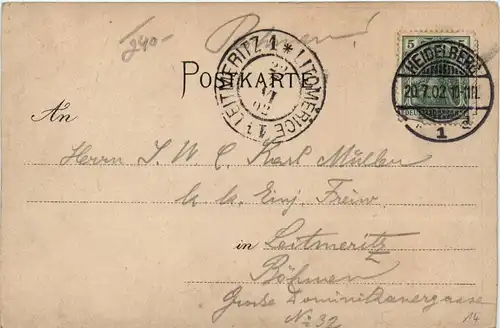 240-
Böhmen!
5 5
HEIDELBERG
20.7.02.
1
LEITMERITZ 1 * LITOMĚŘICE 1
POSTKARTE
An
Herrn I. W. C. Karl Müller
k. k. Einj. Freiw.
in Leitmeritz
Böhmen
Große Dominikanergasse
No 32